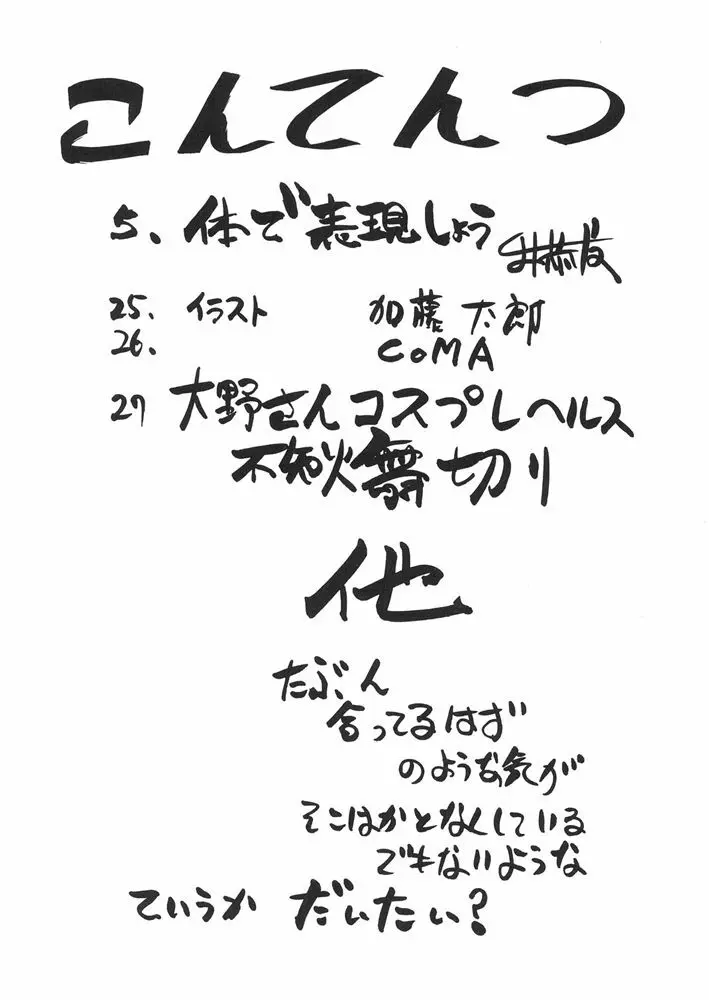 こんてんつ
5、体で表現しよう
25、イラスト 加藤 太郎
26、 CoMA
27 大野さんコスプレヘルス
不知火舞切り
他
たぶん
合ってるはず
のような気が
そこはかとなくしている
でもないような
ていうか だいたい?